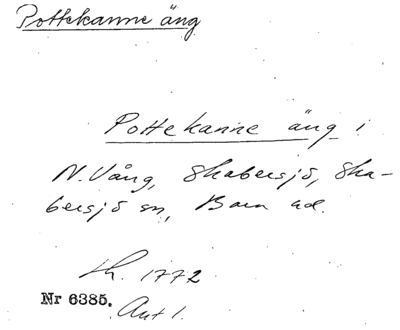 Pottekanne äng
Pottekanne äng i
N. Vång, Skabersjö, Ska-
bersjö sn, Bara hd.
Lh. 1772
Nr 6385.
Ant 1.